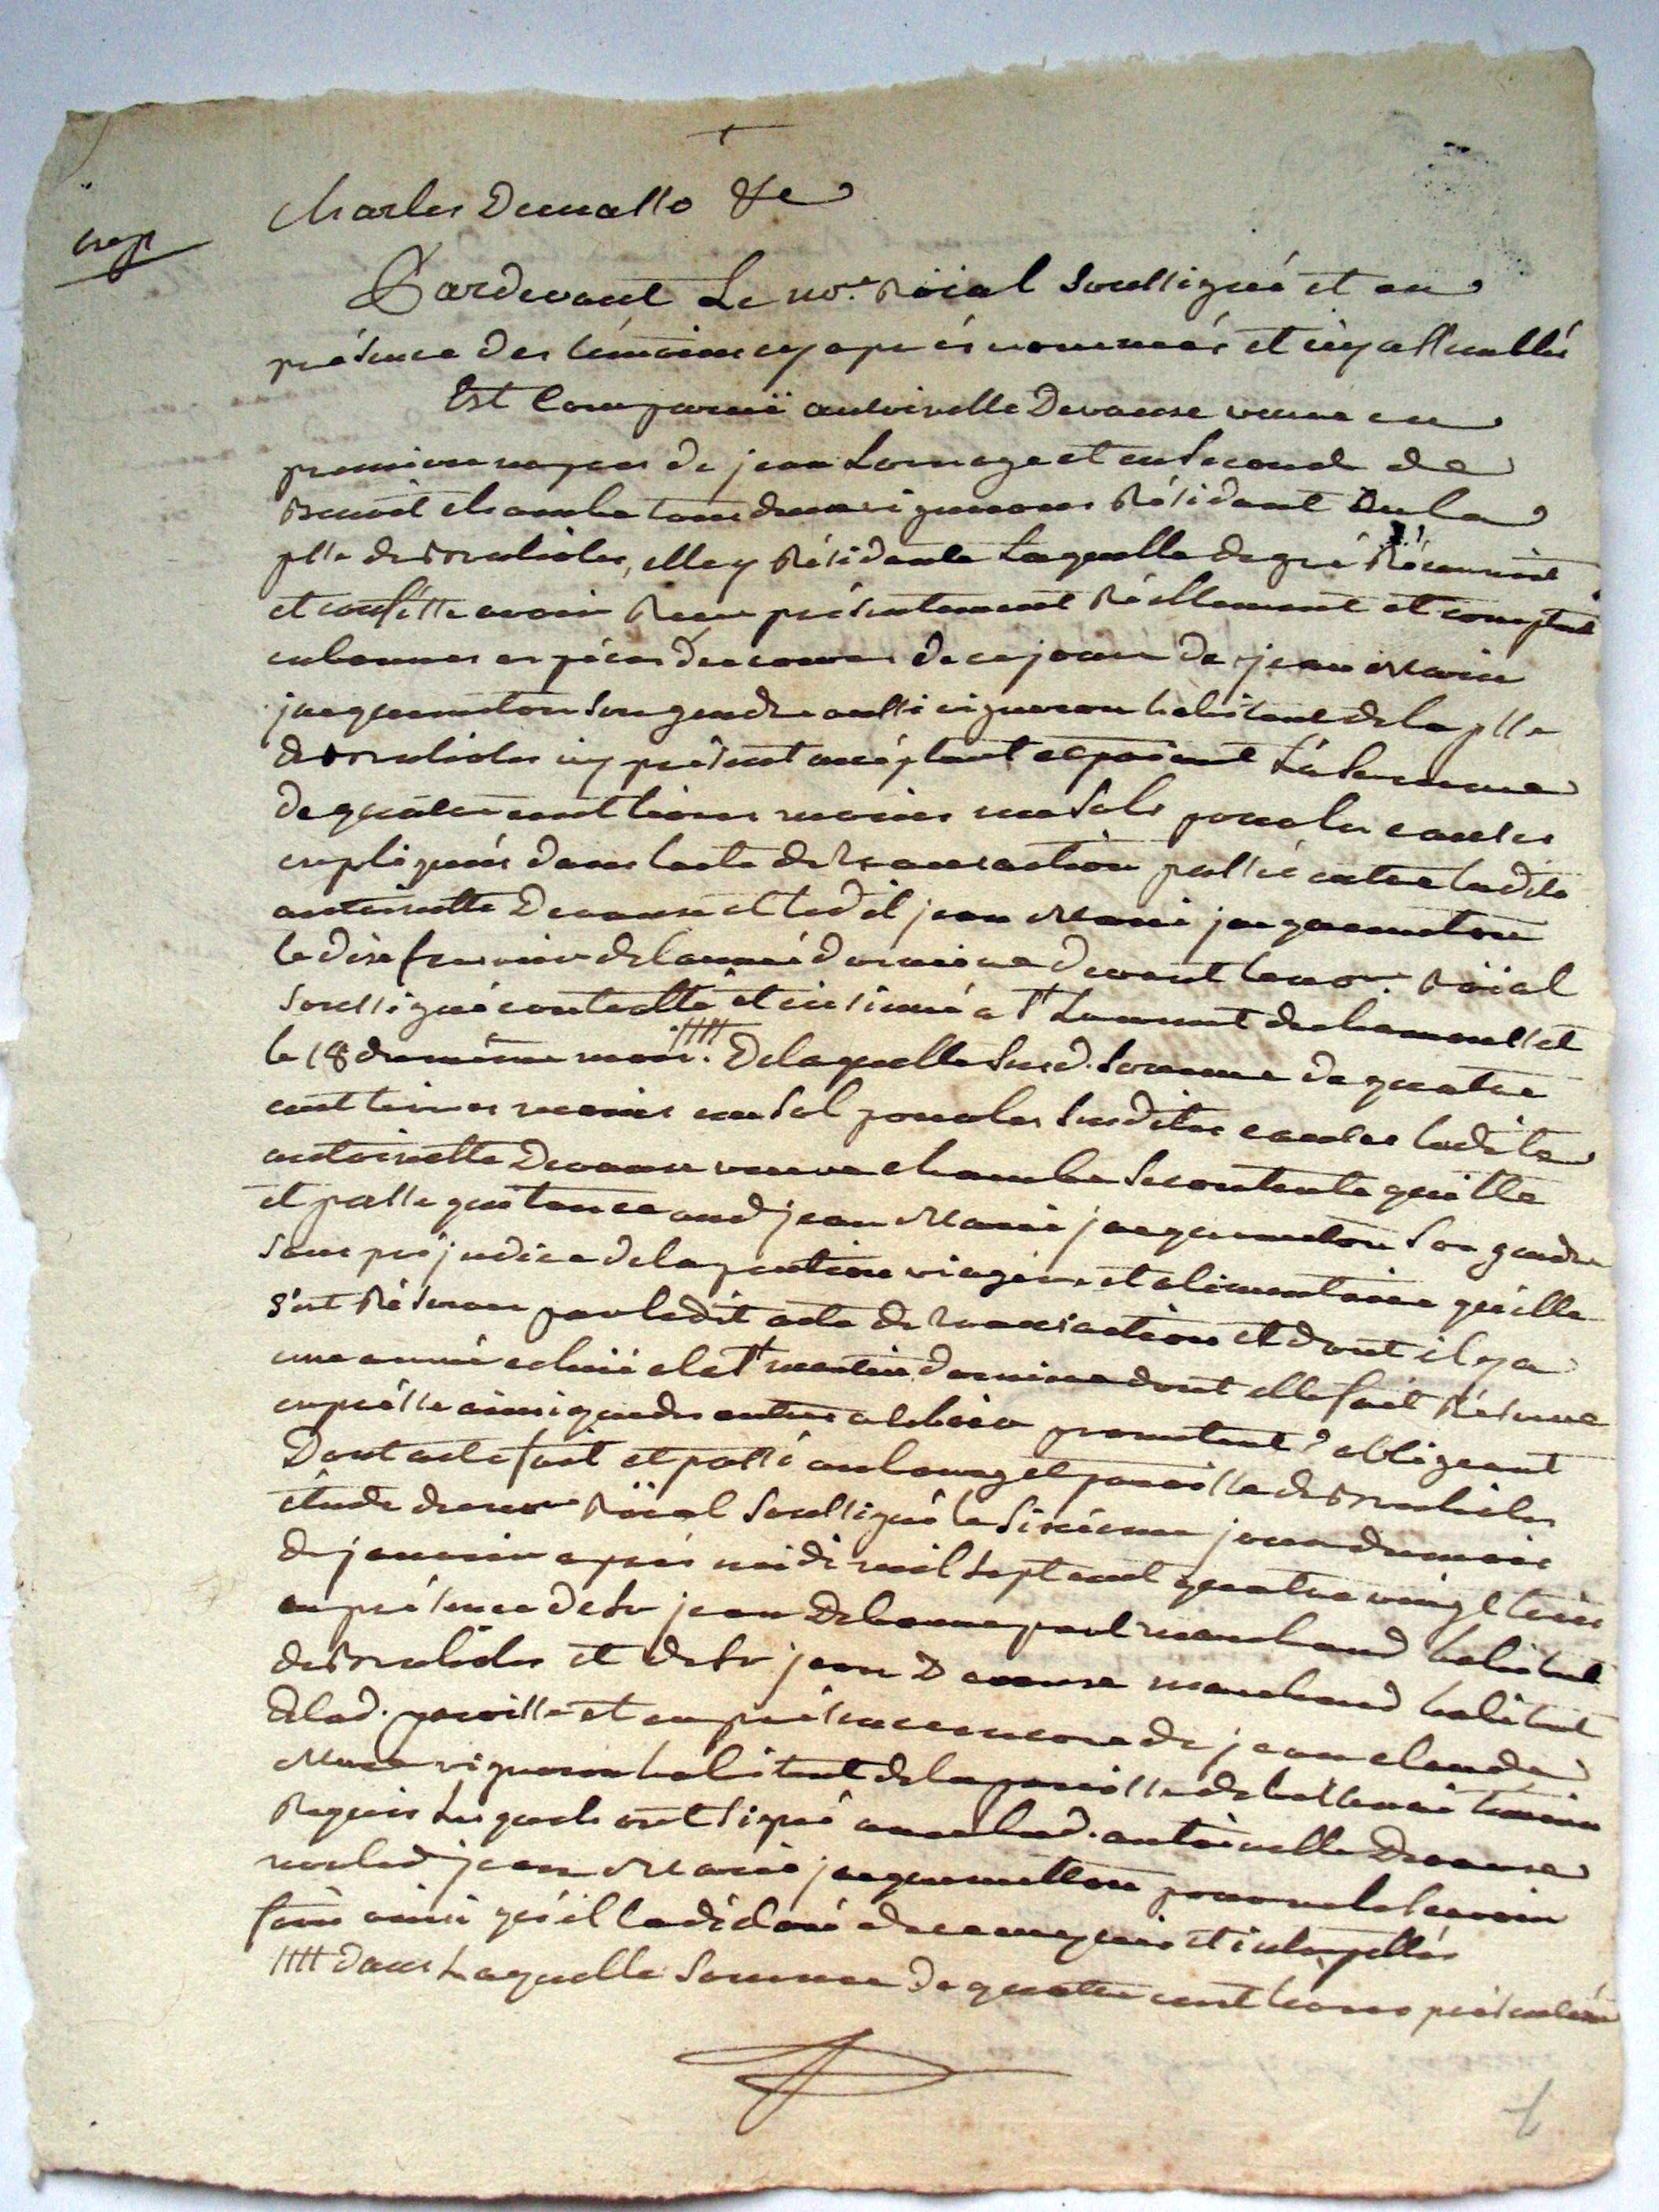 Charles Demasso &c
exp
Pardevant Le no.re Roïal Soussigné et en
présence des témoins cy après nommés et icy assemblés
Est Comparuë antoinette Devause veuve en
premiere nopces de jean Lornage et en Second de
Benoit chambe tous deux vignerons Résidant En la
psse de Brulioles, elle y Résidante Laquelle de gré Réconnoit
et confesse avoir Reçu présentement Réellement et comptant
en bonnes espéces de cours de ce jour de jean Marie
jacquemeton son gendre aussi vigneron habitant de la psse
de Brulioles icy présent acéptant et paiant La Somme
de quatre cent livres moins un Sols pour les causes
expliqueés dans l'acte de transaction passé entre ladite
antoinette Devause et ledit jean Marie jacquemeton
le dix fevrier de l'année derniere devant le no.re Roïal
Soussigné controllé et insinué a St Laurent de chamousset
le 18 du même mois. De laquelle Susd. Somme de quatre
cent livres moins un Sol pour les Susdites causes ladite
antoinette Devause veuve chambe Se contente quitte
et passe quitance aud jean Marie jacquemeton Son gendre
Sans préjudice de la pention viagére et alimentaire qu'elle
s'est Réservée par ledit acte de transaction et dont il y a
une année echuë a la St martin derniere dont elle fait Réserve
expresse ainsi que des autres a echoir promettant obligeant
Dont acte fait et passé au bourg et paroisse de Brulioles
étude du no.re Roïal Soussigné le Sixiéme jour du mois
de janvier après midi mil Sept cent quatre vingt trois
en présence de Sr jean Debonnepart marchand habitant
de Brulioles et de Sr jean Devause marchand habitant
de lad. paroisse et en présence encore de jean claude
vigneron habitant de la paroisse de témoins
Requis Lesquels ont Signé avec lad. antoinette Devause
non led jean Marie jacquemetton pour ne le Savoir
faire ainsi qu'il l'a déclaré de ce enquis et interpellés
dans Laquelle Somme de quatre cent livres